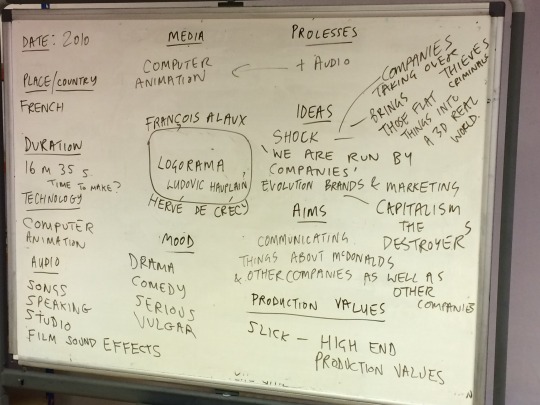 DATE: 2010
PLACE/COUNTRY
FRENCH
DURATION
16 M 35 S.
TIME TO MAKE?
TECHNOLOGY
COMPUTER
ANIMATION
AUDIO
SONGS
SPEAKING
STUDIO
FILM SOUND EFFECTS
MEDIA
COMPUTER
ANIMATION
FRANÇOIS ALAUX
LOGORAMA
LUDOVIC HAUPLAIN
HERVÉ DE CRÉCY
MOOD
DRAMA
COMEDY
SERIOUS
VULGAR
PROLESSES
+ AUDIO
IDEAS
SHOCK
COMPANIES
TAKING OVER
THIEVES
CRIMINALS
BRINGS
THOSE FLAT
THINGS INTO
A 3D REAL
WORLD.
'WE ARE RUN BY
COMPANIES'
EVOLUTION BRANDS & MARKETING
CAPITALISM
THE
DESTROYERS
AIMS
COMMUNICATING
THINGS ABOUT MCDONALDS
& OTHER COMPANIES AS WELL AS
OTHER
COMPANIES
PRODUCTION VALUES
SLICK - HIGH END
PRODUCTION VALUES